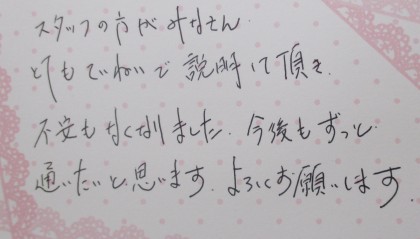 スタッフの方がみなさん
とてもていねいで説明して頂き、
不安もなくなりました。今後もずっと
通いたいと思います。よろしくお願いします。